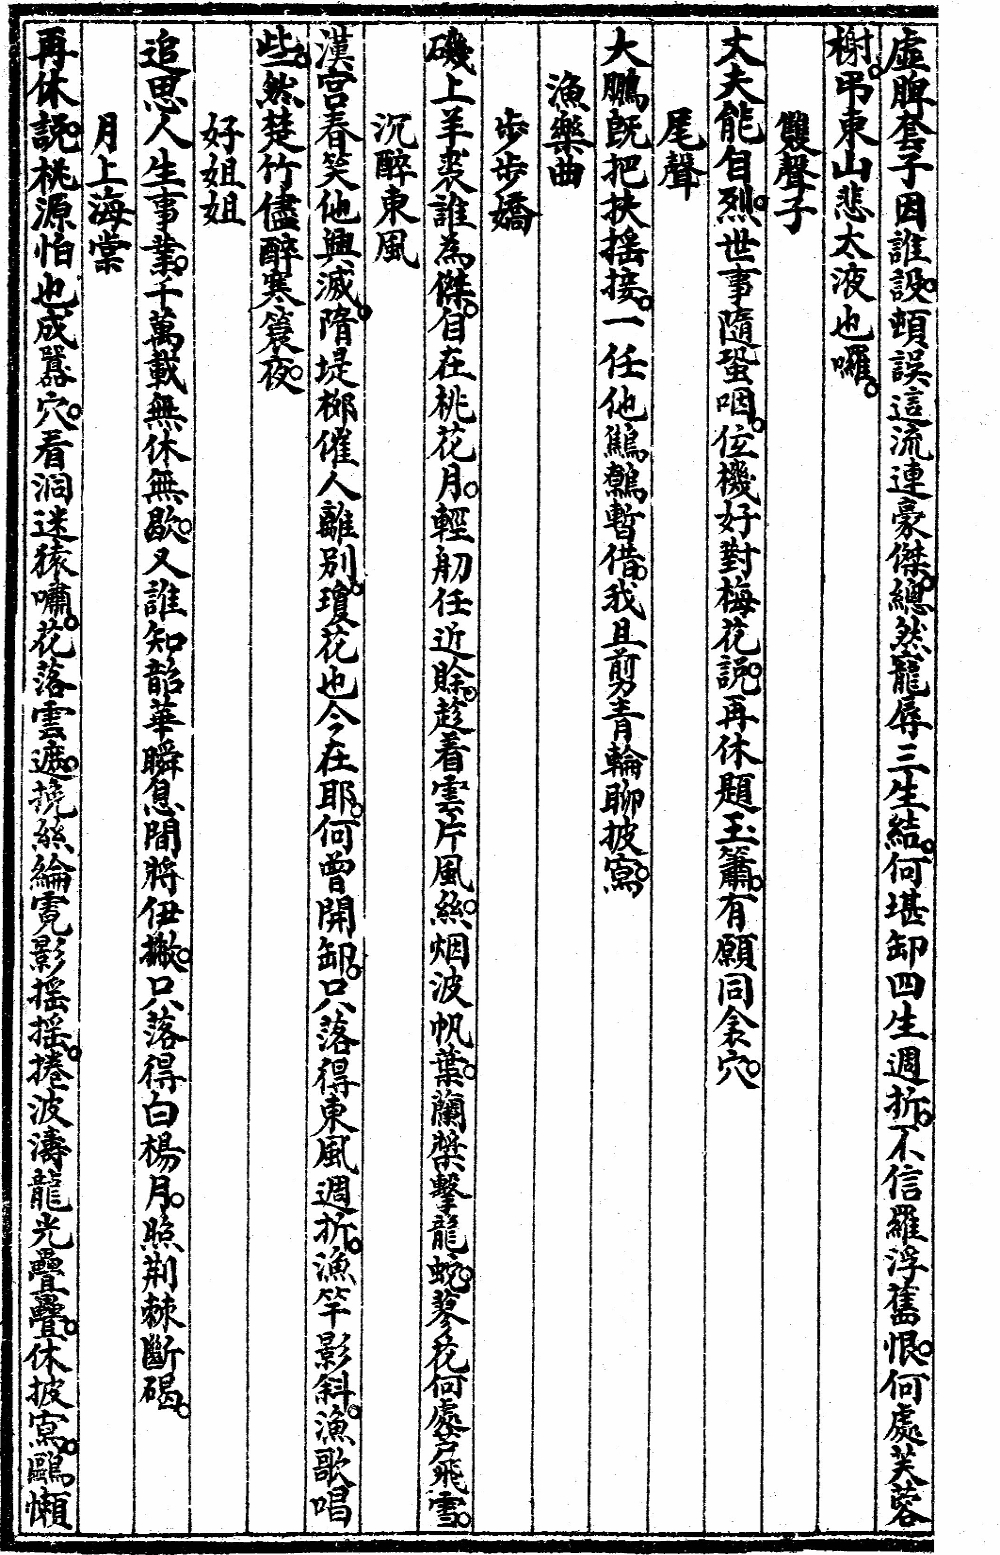 虛脾套子因誰設頓誤這流連豪傑總然寵辱三生結何堪卸四生週折不信羅浮舊恨何處芙蓉
榭弔東山悲太液也囉
雙聲子
太夫能自烈世事隨蛩咽位機好對梅花説再休題玉簫有願同衾穴
尾聲
大鵬既把扶摇接一任他鷦鷯暫借我且剪青輪聊披寫
漁樂曲
步步嬌
磯上羊裘誰為傑自在桃花月輕舠任近賖趂着雲片風絲烟波帆葉蘭槳擊龍蜿蓼花何處芦飛雪
沉醉東風
漢宫春笑他興滅隋堤柳催人離别瓊花也今在耶何曽開卸只落得東風週折漁竿影斜漁歌唱
些然楚竹儘醉寒簑夜
好姐姐
追思人生事業千萬載無休無歇又誰知韶華瞬息間將伊撇只落得白楊月照荆棘斷碣
月上海棠
再休説桃源怕也成嚣穴看洞迷猿嘯花落雲遮挽絲綸霓影摇摇捲波濤龍光疊疊休披寫鷗懶